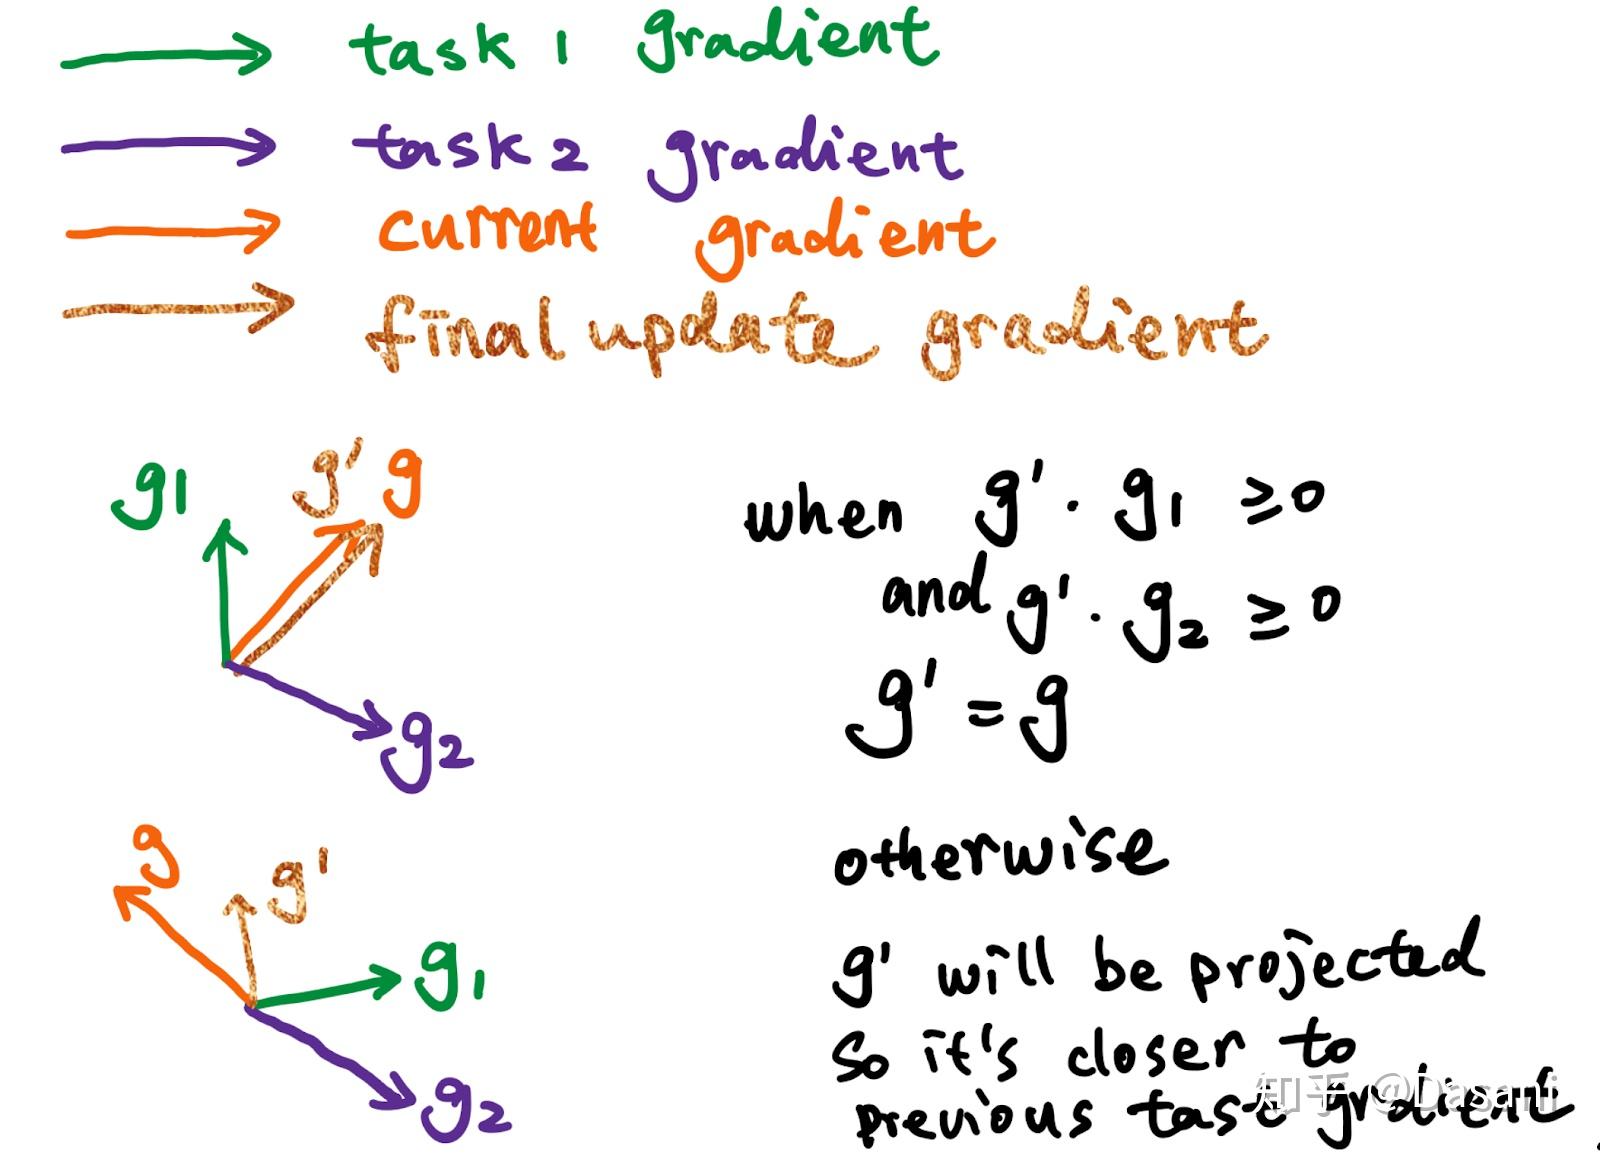 task 1 gradient
task 2 gradient
current gradient
final update gradient
g1
g' g
g2
when g' · g1 ≥0
and g' · g2 ≥ 0
g' = g
g
g'
g1
g2
otherwise
g' will be projected
so it's closer to
previous task gradient
知乎 @Dasani